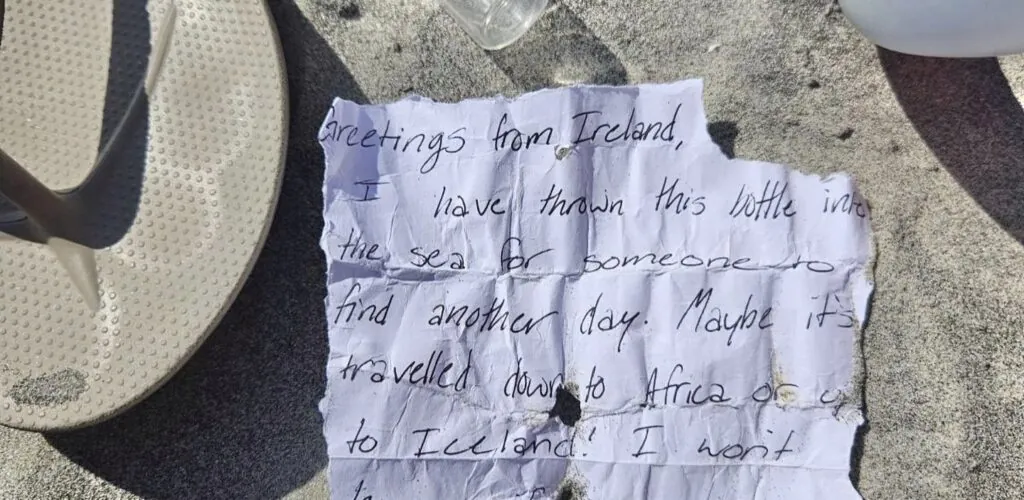 Greetings from Ireland,
I have thrown this bottle into
the sea for someone to
find another day. Maybe it's
travelled down to Africa or
to Iceland! I won't